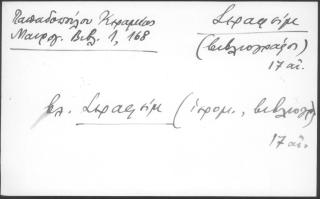 Παπαδοπούλου Κεραμέως
Μαυρογ. Βιβλ. 1, 168
Σεραφείμ
(βιβλιογράφος)
17 αἰ.
βλ. Σεραφείμ (ἱερομ., βιβλιογρ)
17 αἰ.